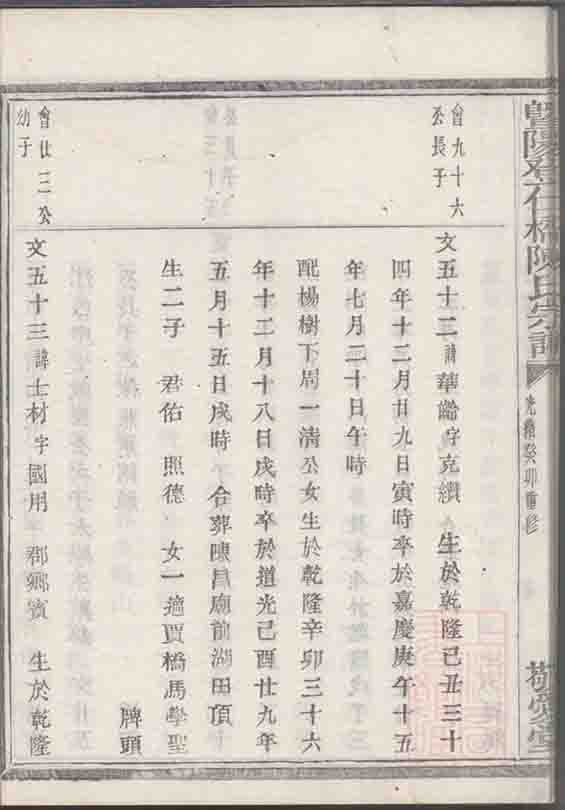 暨陽登仁橋陳氏宗譜
光緒癸卯重修
敬愛堂
會九十六
公長子
文五十二諱華齡字克纘 生於乾隆己丑三十
四年十二月廿九日寅時卒於嘉慶庚午十五
年七月二十日午時
配楊樹下周一清公女生於乾隆辛卯三十六
年十二月十八日戌時卒於道光己酉廿九年
五月十五日戌時 合葬陳昌廟前湖田頂
生二子 君佑 照德 女一適賈橋馬學聖
牌頭
會仕三公
幼子
文五十三諱士材字國用 郡鄉賓 生於乾隆